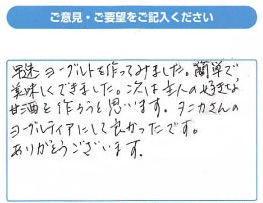 ご意見・ご要望をご記入ください
早速ヨーグルトを作ってみました。簡単で、
美味しくできました。次は主人の好きな
甘酒を作ろうと思います。タニカさんの
ヨーグルティアにして良かったです。
ありがとうございます.